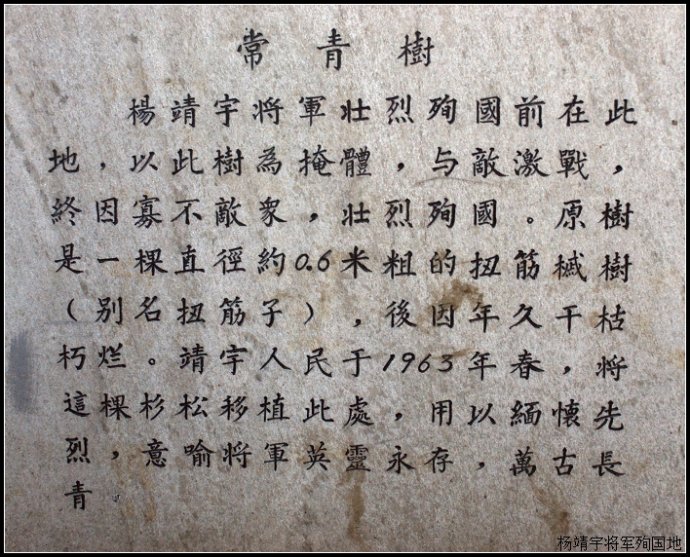 常青樹
楊靖宇将軍壯烈殉國前在此
地，以此樹為掩體，与敵激戰，
終因寡不敵衆，壯烈殉國。原樹
是一棵直徑約0.6米粗的扭筋槭樹
（别名扭筋子），後因年久干枯
朽烂。靖宇人民于1963年春，将
這棵杉松移植此處，用以緬懷先
烈，意喻将軍英靈永存，萬古長
青
杨靖宇将军殉国地